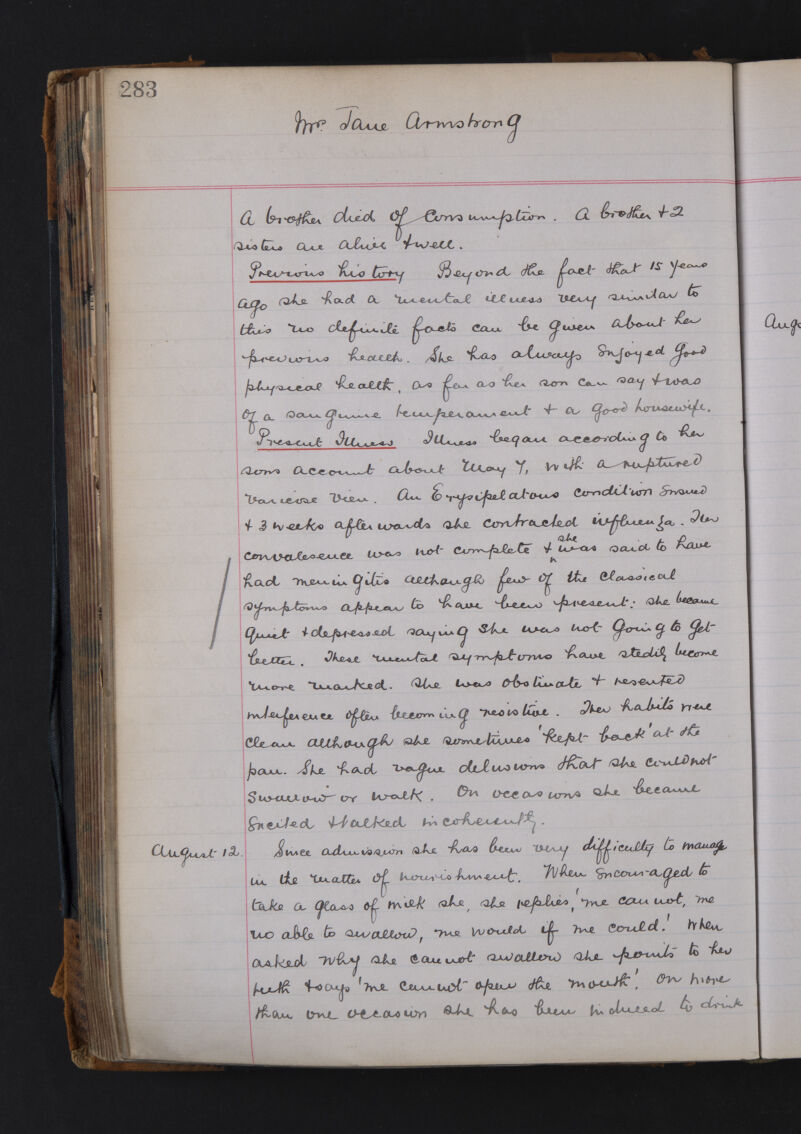 283
Mrs Jane Armstrong
A brother died of Consumption. A brother + 2
sisters are alive + well.
Previous history Beyond the fact that 15 years
ago she had a mental illness very similar to
this no definite facts can be given about her
previous health. She has always enjoyed good
physical health, as far as her son can say + was
of a sanguine temperament + a good housewife.
Present Illness Illness began according to her
sons account about May 7, with a ruptured
varicose vien. An Erysipelatous condition ensued
+ 3 weeks afterwards she contracted influenza. Her
convalesence was not complete + she was said to have
had meningitis although few of the classical
symptoms appear to have been present: she became
quiet + depressed saying she was not going to get
better. These mental symptoms have stedily become
more marked. She was obstinate + resented
interference often becoming resistive. Her habits were
clean although she sometimes 'kept back' at the
pan. She had vague delusions that she could not
swallow or walk. On occasions she became
excited + talked incoherently.
August 12. Since admission she has been very difficulty to manage
in the matter of nourishment. When encouraged to
take a glass of milk she, she replies, 'me cannot, me
no able to swallow, me would if me could.' When
asked why she cannot swallow she points to her
teeth + says 'me cannot open the mouth'. On more
than one occasion she has been induced to drink
Aug